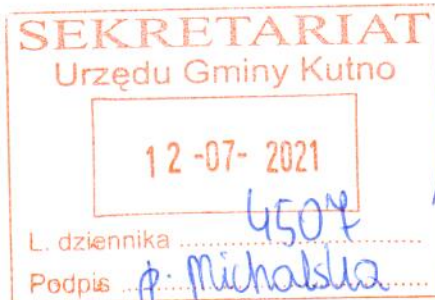 SEKRETARIAT
Urzędu Gminy Kutno
12-07-2021
L. dziennika 4507
Podpis p. Michalska